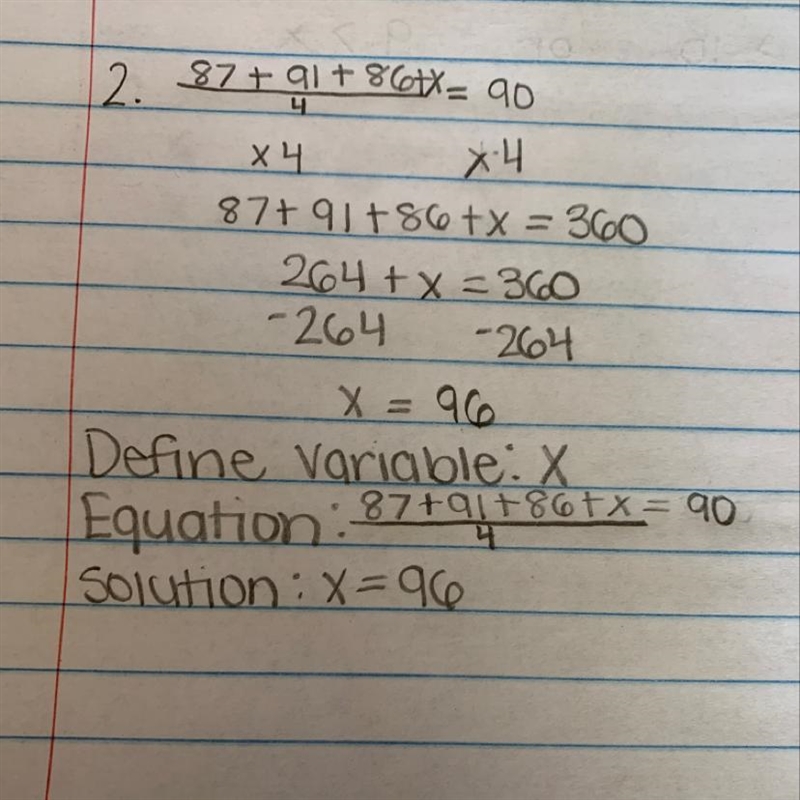 2. 87 + 91 + 86 + x = 90
4
x 4 x 4
87 + 91 + 86 + x = 360
264 + x = 360
-264 -264
x = 96
Define variable: X
Equation: 87 + 91 + 86 + x = 90
4
Solution: x = 96